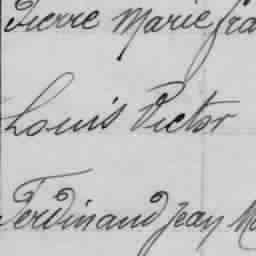 Pierre Marie fra
Louis Victor
Ferdinand Jean Ma